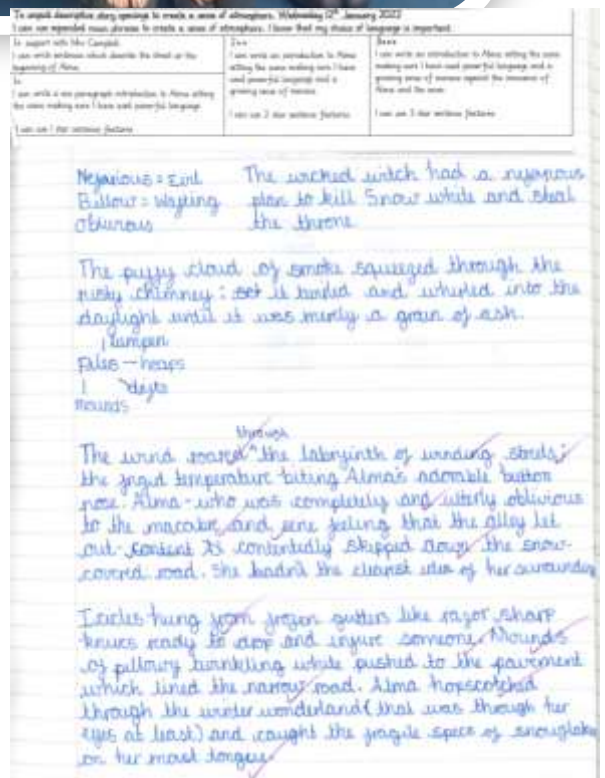 To unpick descriptive story openings to create a sense of atmosphere. Wednesday 12th January 2022
I can use expanded noun phrases to create a sense of atmosphere. I know that my choice of language is important.
In support with Mrs Campbell:
I can write sentences which describe the street at the
beginning of Alma.
1*
I can write a one paragraph introduction to Alma setting
the scene making sure I have used powerful language.
I can use 1 star sentence features
I can write an introduction to Alma
setting the scene making sure I have
used powerful language and a
growing sense of menace.
I can use 2 star sentence features
I can write an introduction to Alma setting the scene
making sure I have used powerful language and a
growing sense of menace against the innocence of
Alma and the snow.
I can use 3 star sentence features
Nefarious = Evil The wicked witch had a nefarious
Billow = Wafting plan to kill Snow white and steal
the throne
The puffy cloud of smoke squeezed through the
rusty chimney: it and whirled into the
daylight until it was merly a grain of ash.
Piles - heaps
mounds
through
The wind roared ^ the labyrinth of winding streets;
the frigid temperature biting Alma's adorable button
nose. Alma - who was completely and utterly oblivious
to the macabre and feeling that the alley let
out - contentedly skipped down the snow-
covered road. She hadn't the clearest idea of her
Icicles hung from frozen gutters like razor sharp
knives ready to drop and injure someone. Mounds
of pillowy twinkling white pushed to the pavement
which lined the narrow road. Alma hopscotched
through the winter wonderland (that was through her
eyes at least) and caught the fragile specs of snowflake
on her moist tongue.